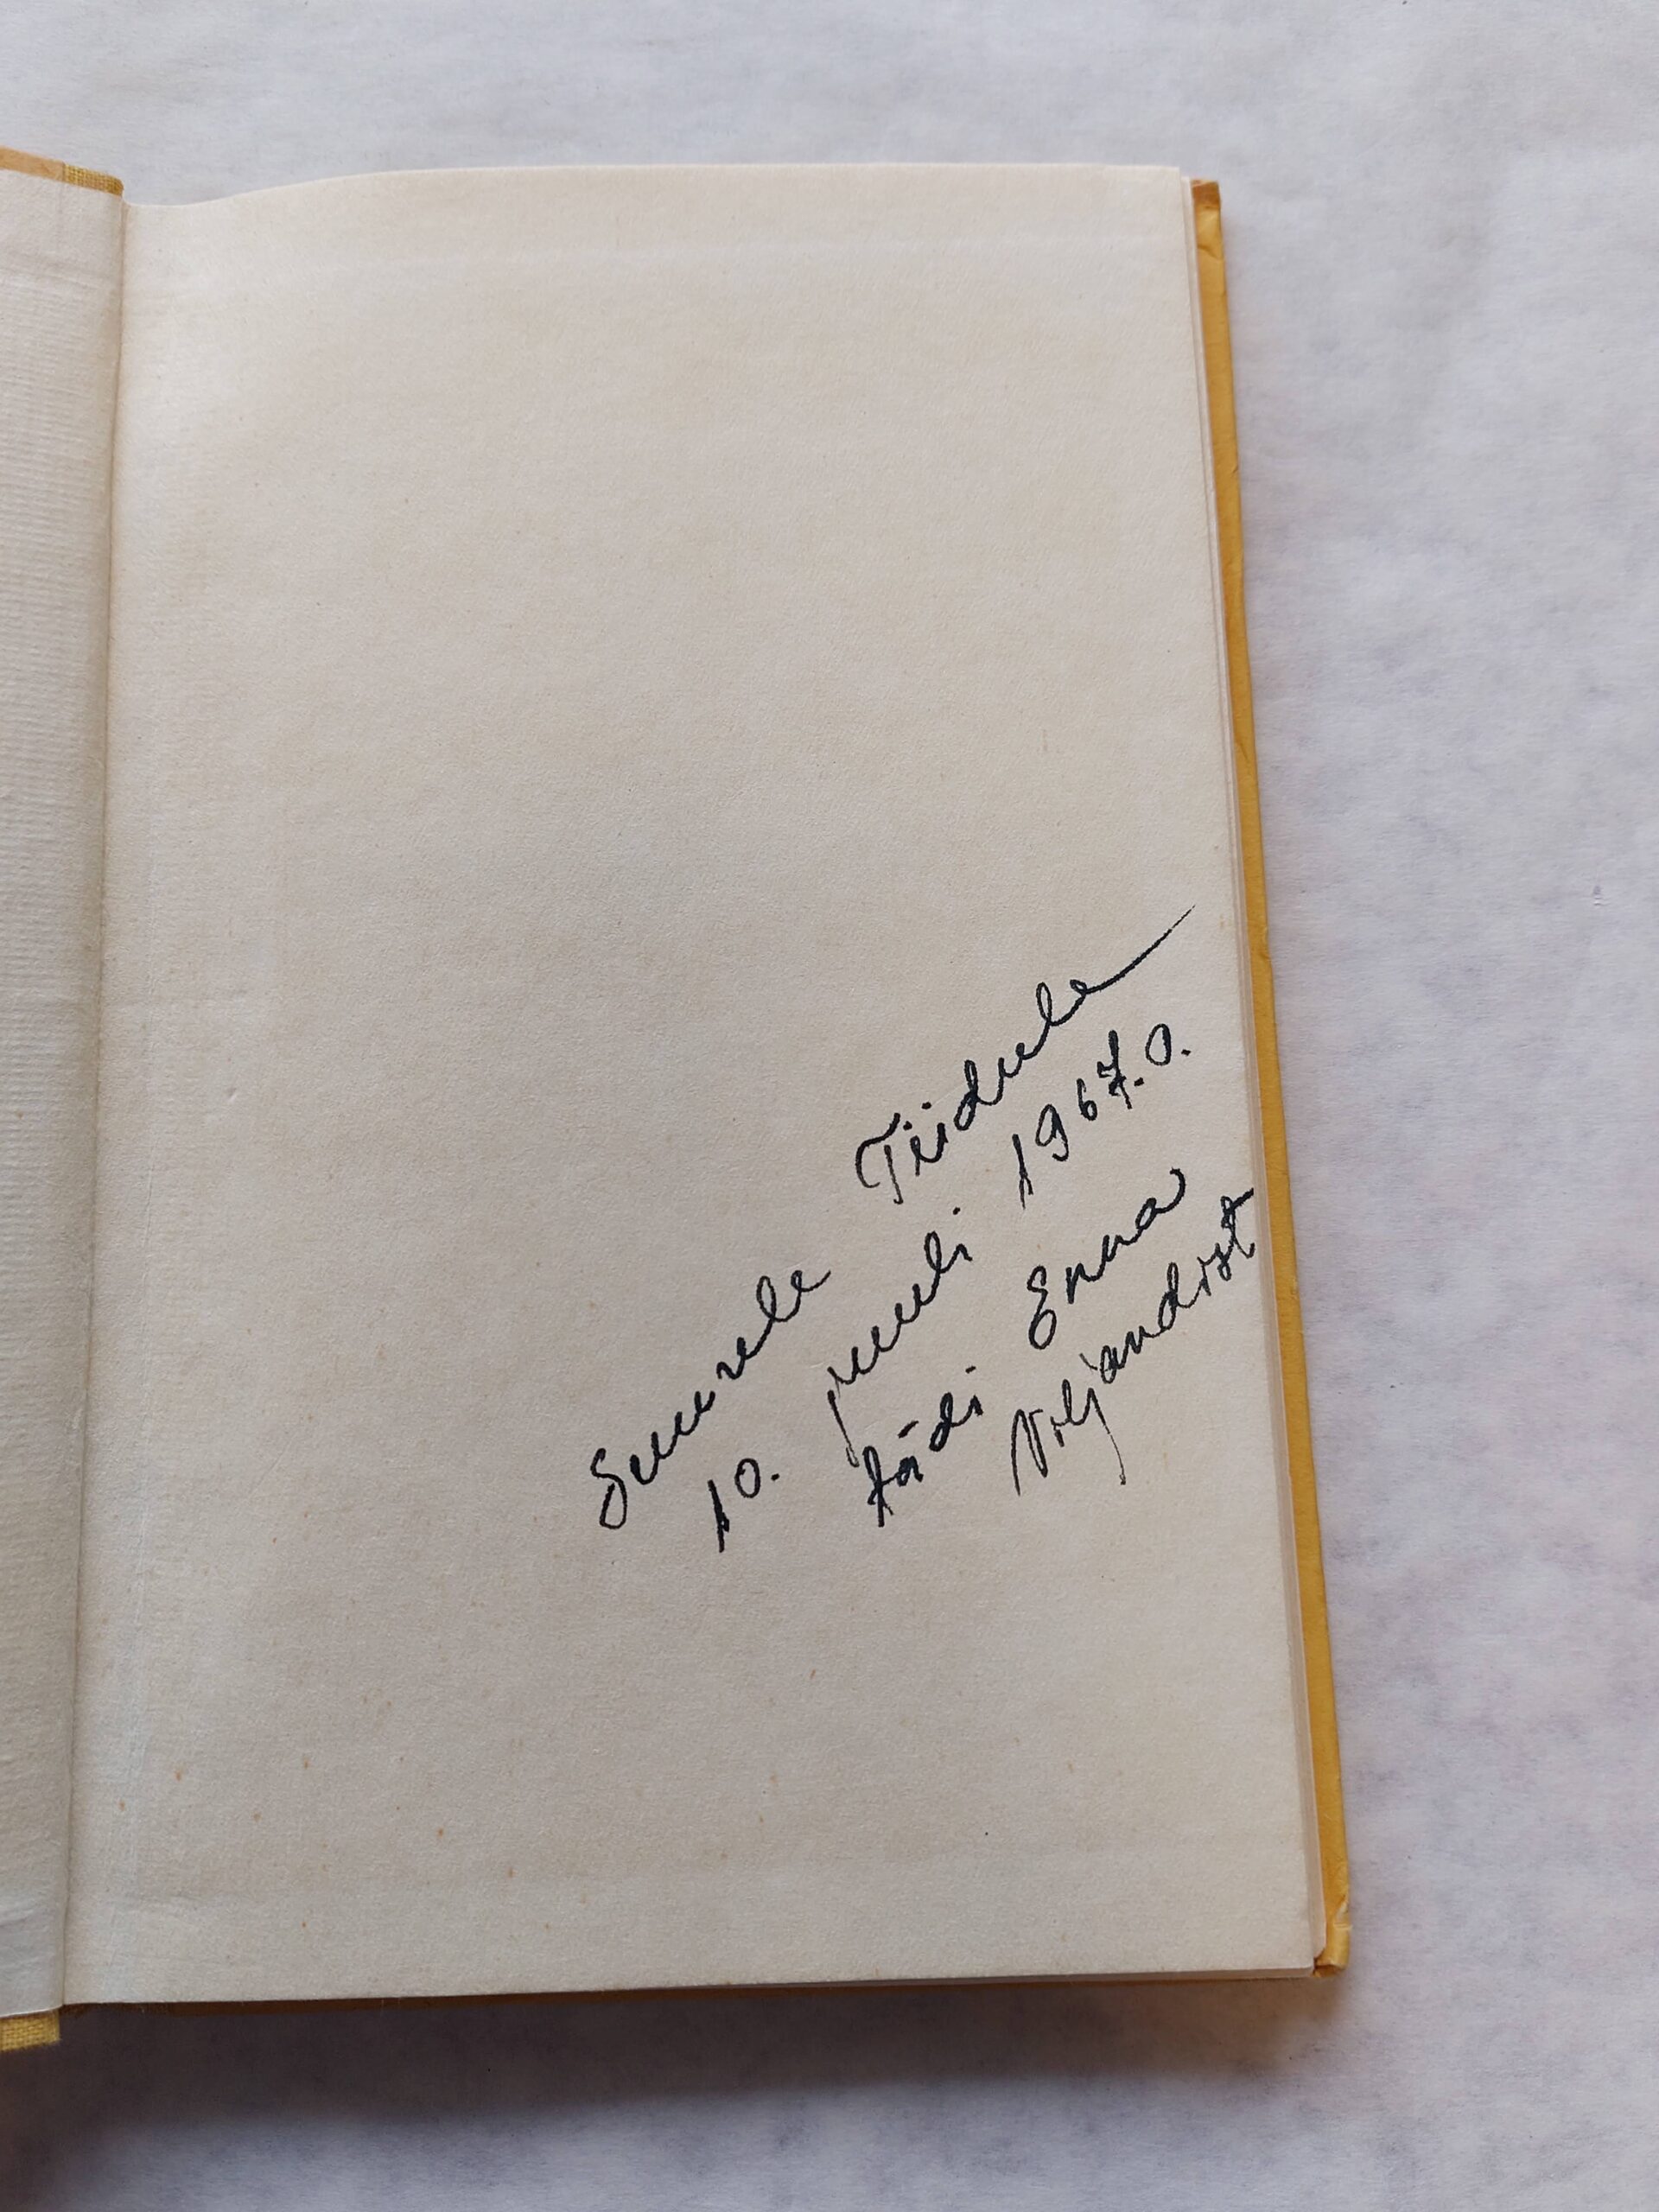 Suurele Tiidule
10. juuli 1967.a.
tädi Erna
Viljandist